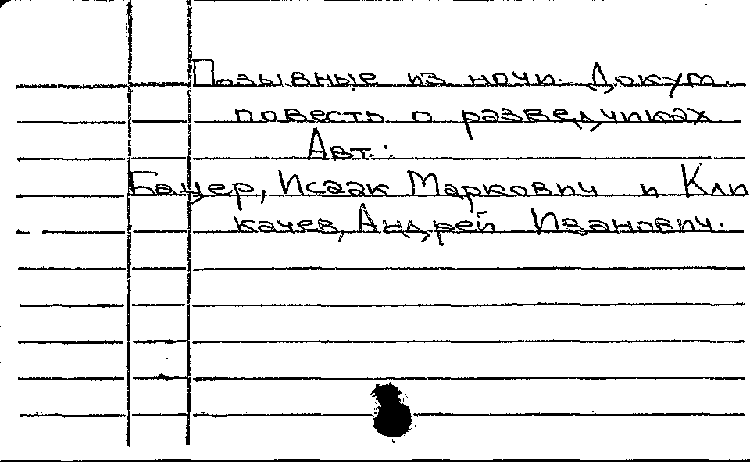 Позывные из ночи. Докум.
повесть о разведчиках
Авт.:
Бацер, Исаак Маркович и Кли
качев, Андрей Иванович.